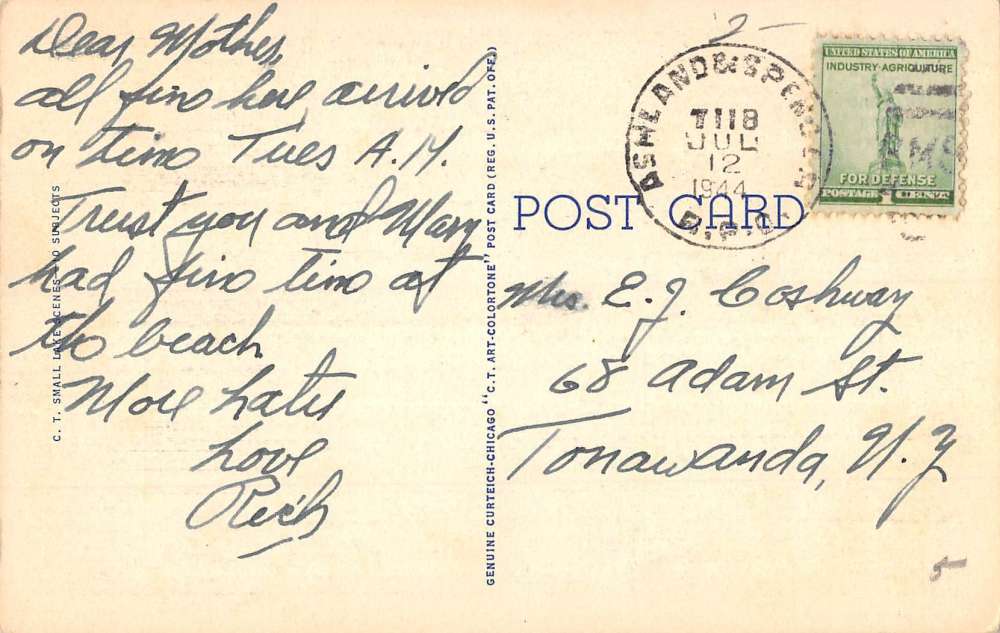 Dear Mother,
all fine here arrived
on time Tues A.M.
Trust you and Mary
had fine time at
the beach.
More Later
Love
Rich
C. T. SMALL LAKE SCENES AND SUBJECTS
GENUINE CURTEICH-CHICAGO "C.T. ART-COLORTONE" POST CARD (REG. U.S. PAT. OFF.)
2
ASHLAND & SPENC
T118
JUL
12
1944
R.P.O.
UNITED STATES OF AMERICA
INDUSTRY·AGRICULTURE
FOR DEFENSE
POSTAGE 1 CENTS
POST CARD
Mrs. E. J. Coshway
68 Adam St.
Tonawanda, N.Y
5